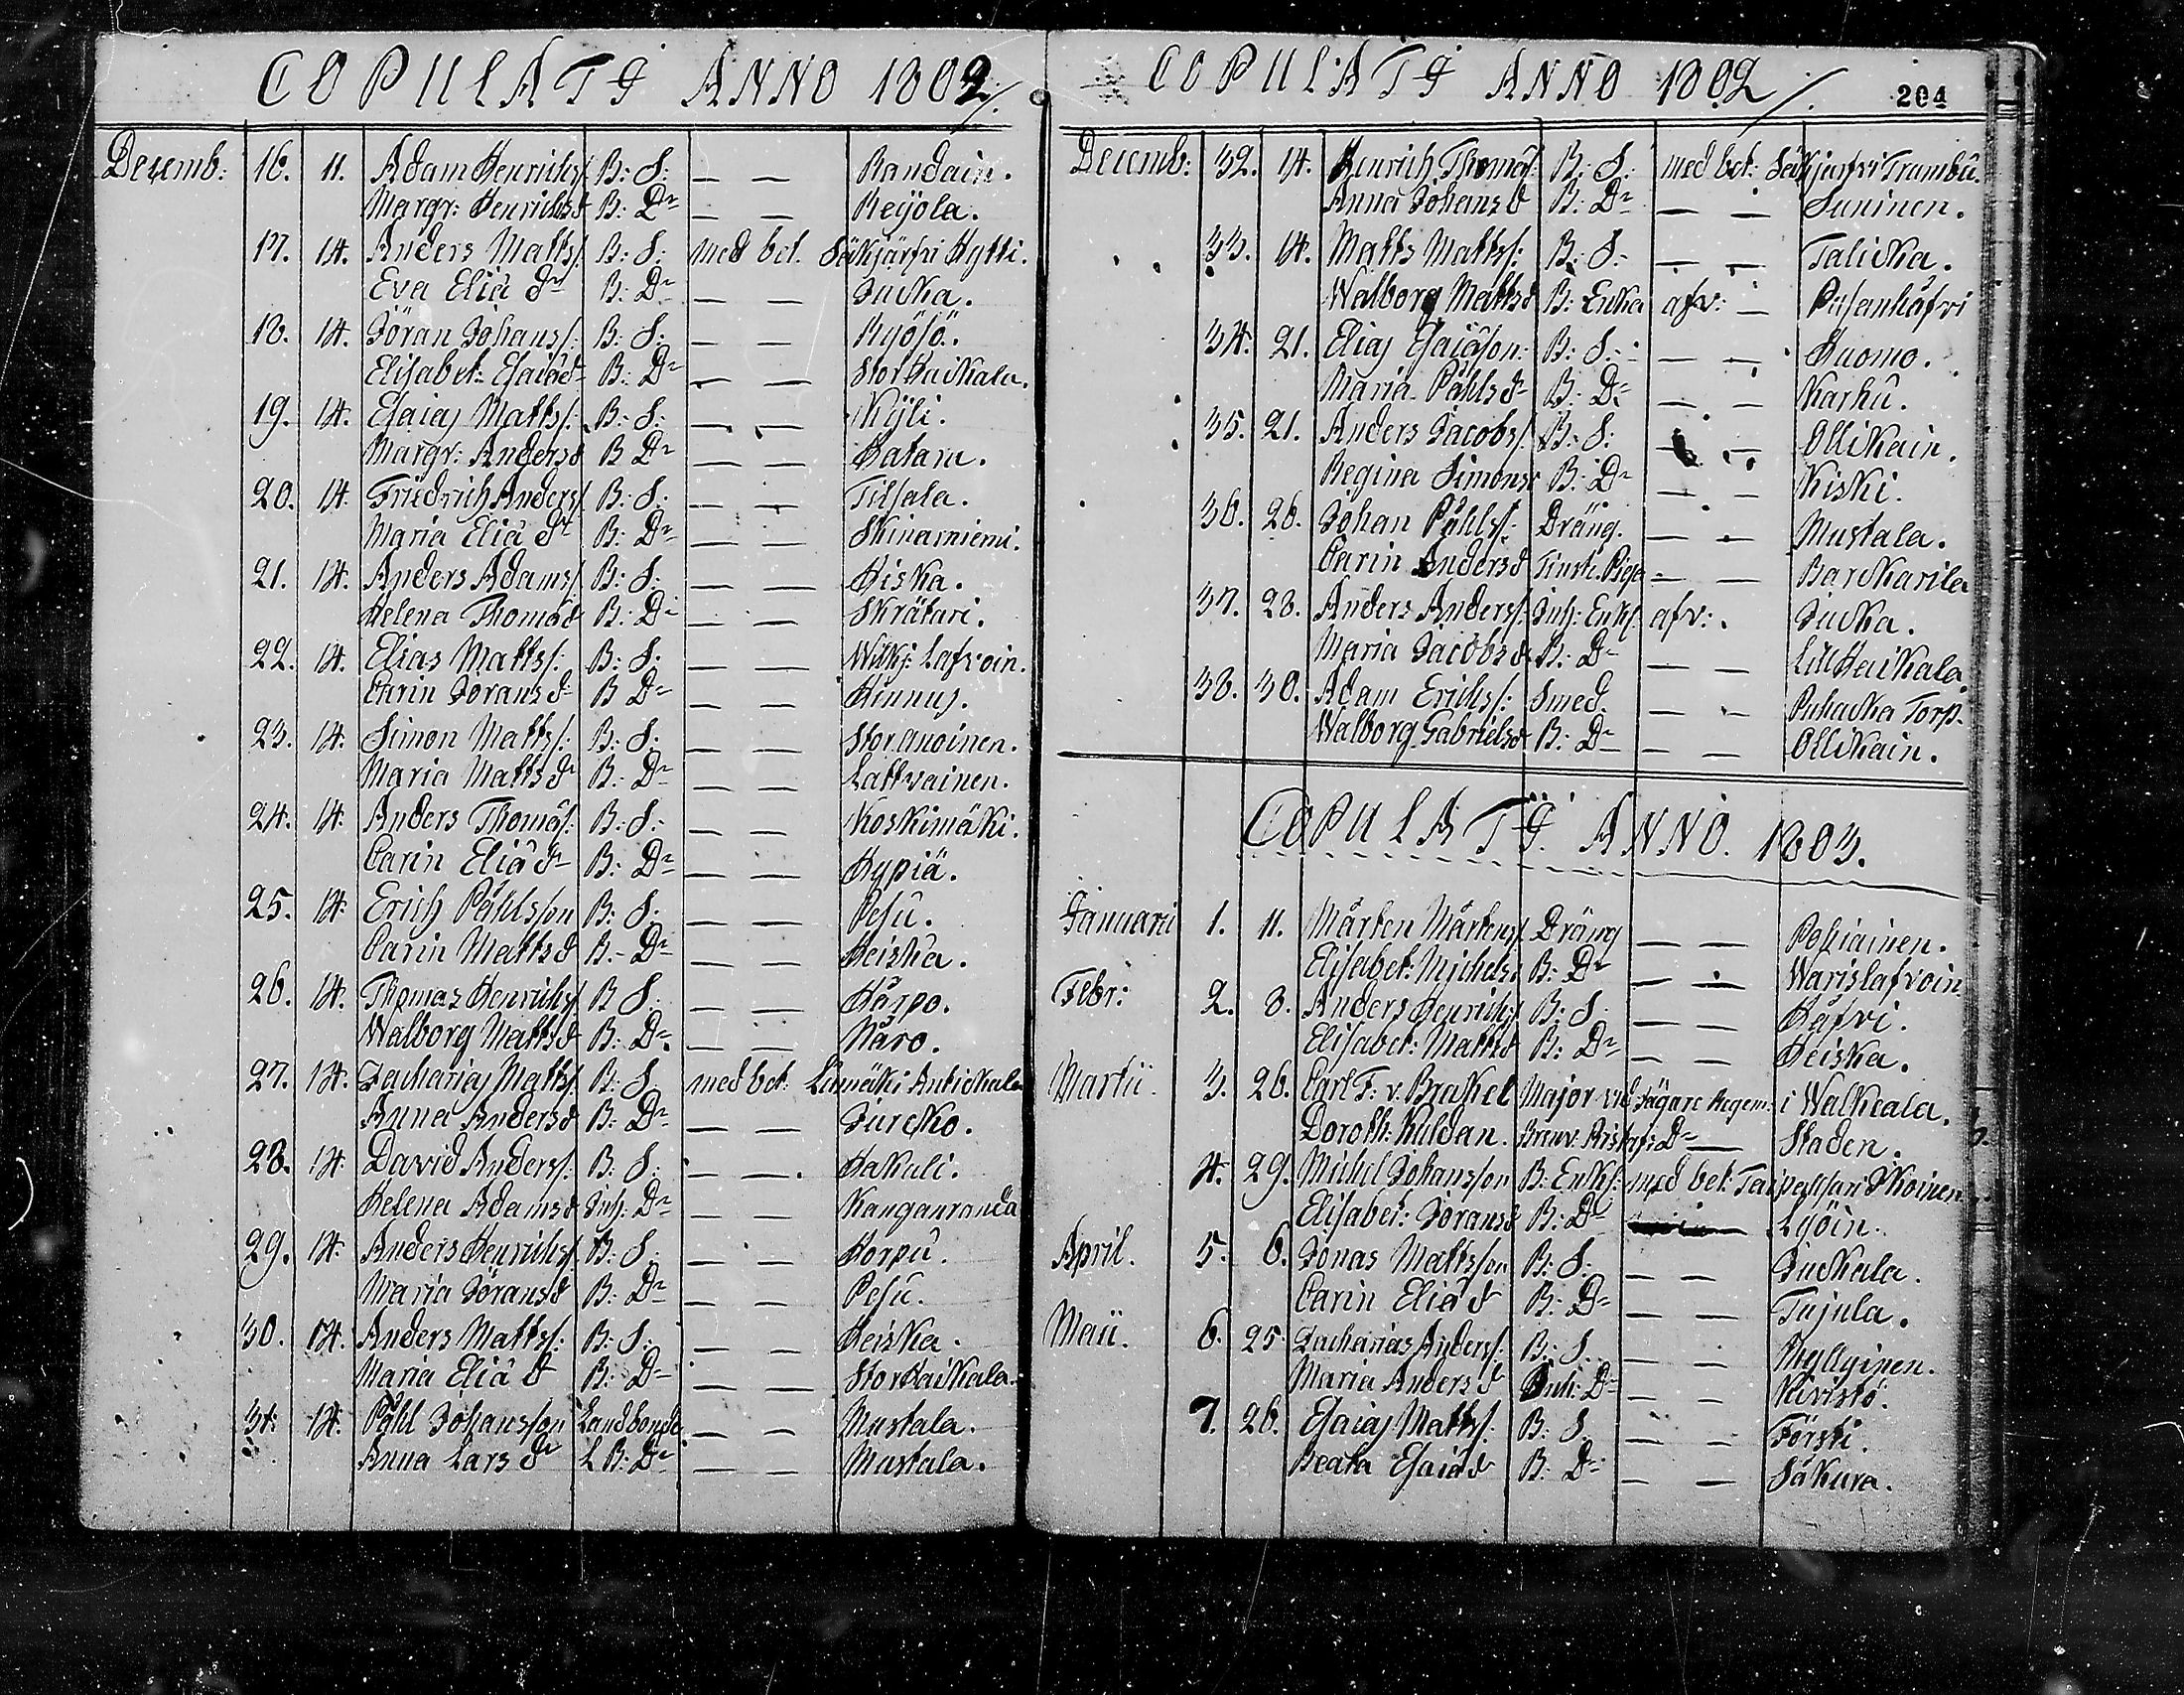 COPULATI ANNO 1802/.
Decemb: 16. 11. Adam Henrichs/: B: S: — — Randain.
Margr: Henrichsd B: Dr — — Reijola.
17. 14. Anders Matts/: B: S: med bet. Säkjärfvi Hytti.
Eva Eliæ dr B: Dr — — Jucka.
18. 14. Jöran Johans/: B: S: — — Ryösö.
Elisabet: Esaiæd B: Dr — — StorHaikala.
19. 14. Esaias Matts/: B: S: — — Kyli.
Margr: Andersd B Dr — — Hatara.
20. 14. Friedrich Anders/: B: S: — — Tilsala.
Maria Eliæ dr B: Dr — — Skinarniemi.
21. 14. Anders Adams/: B: S: — — Hiska.
Helena Thomæd B: Dr — — Skrätari.
22. 14. Elias Matts/: B: S: — — Wilkj: Lafvoin.
Carin Jörans dr B Dr — — Hinnus.
23. 14. Simon Matts/: B: S: — — Stor Anoinen.
Maria Matts dr B: Dr — — Lattvainen.
24. 14. Anders Thomæs/: B: S: — — Koskimäki.
Carin Eliæ dr B: Dr — — Hypiä.
25. 14. Erich Påhlsson B: S: — — Pesu.
Carin Mattsd B: Dr — — Heiska.
26. 14. Thomas Henrichs/: B S: — — Härpo.
Walborg Mattsd B: Dr — — Näro.
27. 14. Zacharias Matts/: B: S. med bet. Lumäki Antickala
Anna Andersd B: Dr — — Jurcko.
28. 14. David Anders/: B: S: — — Hakuli.
Helena Adamsd Inh: Dr — — Kanganranda
29. 14. Anders Henrichs/: B: S: — — Horpu.
Maria Jöransd B: Dr — — Pesu.
30. 14. Anders Matts/: B: S: — — Heiska.
Maria Eliæ d B: Dr — — StorHaikala.
31. 14. Påhl Johansson Landbonde — — Mustala.
Anna Lars dr L B: Dr — — Mustala.
COPULATI ANNO 1802/. 204
Decemb: 32. 14. Henrich Thomæs/: B: S: med bet: Säkjärfvi Trambu.
Anna Johansd B: Dr — — Suninen.
33. 14. Matts Matts/: B: S: — — Talicka.
Walborg Mattsd B: Enka afv: — Pasanhäfvi
34. 21. Elias Esaiæson: B: S: — — Huomo.
Maria Påhls dr B: Dr — — Karhu.
35. 21. Anders Jacobs/: B: S: — — Ollikain.
Regina Simonsd B: Dr — — Kiski.
36. 26. Johan Påhls/: Dräng. — — Mustala.
Carin Andersd Tienst. Piga — — Barckarila
37. 28. Anders Anders/: Inh: Enkl. afv: . Jucka.
Maria Jacobsd B: Dr — — LillHaikala.
38. 30. Adam Erichs/: Smed. — — Puhacka Torp.
Walborg Gabrielsd B: Dr — — Ollikain.
COPULATI. ANNO. 1803.
Januarii 1. 11. Mårten Mårtens/: Dräng — — Possiainen.
Elisabet: Michelsd B: Dr — — Warislafvoin
Febr: 2. 8. Anders Henrichs/: B: S. — — Häfvi.
Elisabet: Mattsd B: Dr — — Heiska.
Martii. 3. 26. Carl F: v. Brakel Major vid Jägare Regem: i Walkeala.
Doroth: Kuldan. Dr — Staden.
4. 29. Michel Johansson B: Enkl: med bet: Taipalsari Ikoinen
Elisabet: Jöransd B: Dr — Lyöin.
April. 5. 6. Jonas Mattsson B: S: — — Juckala.
Carin Eliæ d B: Dr — — Tujula.
Maii. 6. 25 Zacharias Anders/: B: S. — — Myllyinen.
Maria Anders d Inh: Dr — — Kivistö.
7. 26. Esaias Matts/: B: S. — — Försti.
Beata Esaiæd B: Dr — — Säkura.